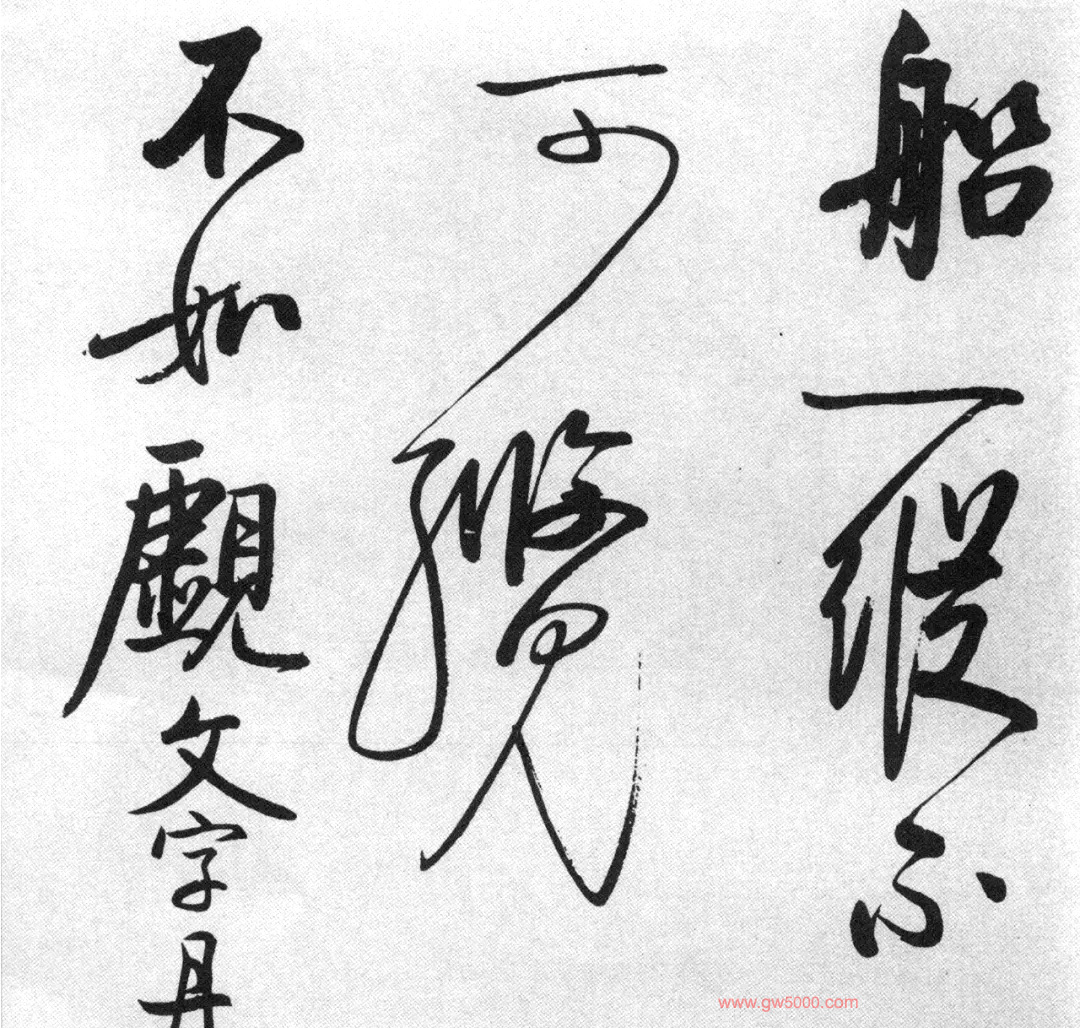 船一縱不
可纜
不如覰文字丹
www.gw5000.com